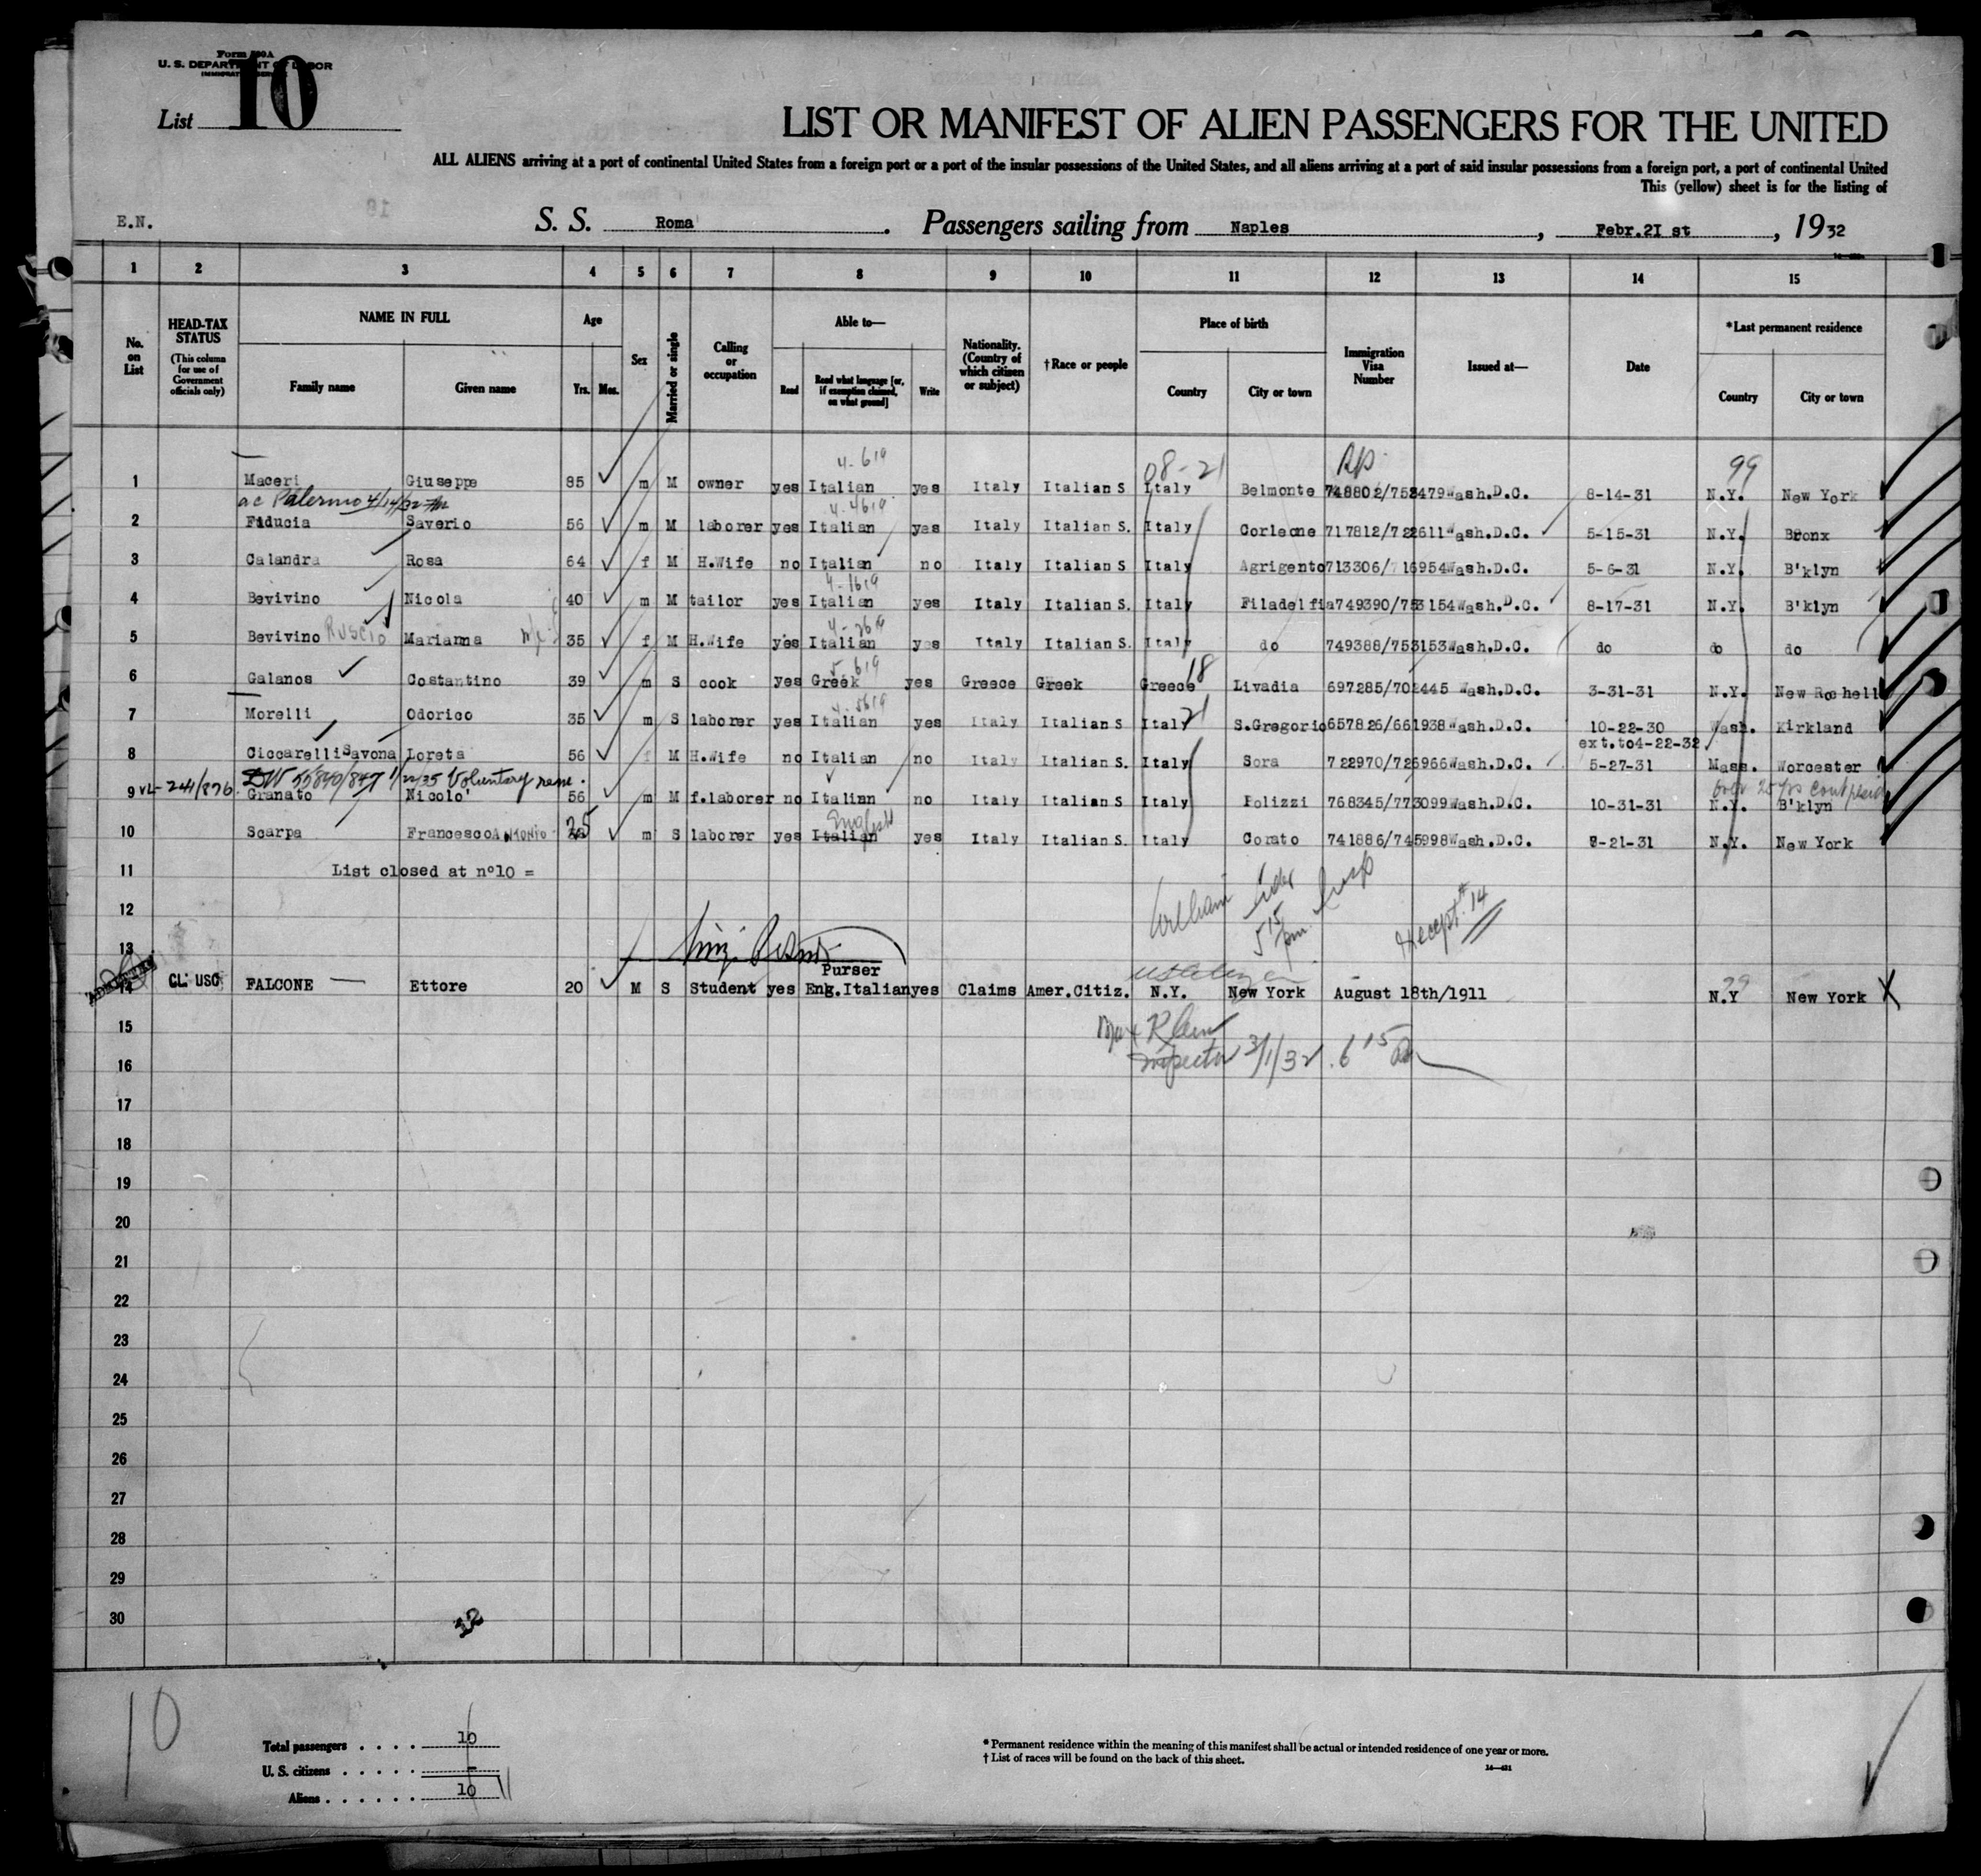 Form 500A
U. S. DEPARTMENT OF LABOR
IMMIGRATION SERVICE
List 10
LIST OR MANIFEST OF ALIEN PASSENGERS FOR THE UNITED
ALL ALIENS arriving at a port of continental United States from a foreign port or a port of the insular possessions of the United States, and all aliens arriving at a port of said insular possessions from a foreign port, a port of continental United
This (yellow) sheet is for the listing of
E.N. S. S. Roma . Passengers sailing from Naples , Febr.2I st , 1932
1 2 3 4 5 6 7 8 9 10 11 12 13 14 15
No. on List
HEAD-TAX STATUS (This column for use of Government officials only)
NAME IN FULL Family name Given name
Age Yrs. Mos.
Sex
Married or single
Calling or occupation
Able to— Read Read what language [or, if exemption claimed, on what ground] Write
Nationality. (Country of which citizen or subject)
†Race or people
Place of birth Country City or town
Immigration Visa Number
Issued at—
Date
*Last permanent residence Country City or town
4-619 08-21 99
1 Maceri Giuseppe m M owner yes Italian yes Italy Italian S Italy Belmonte 748802/753479 Wash.D.C. 8-14-31 N.Y. New York
ac Palermo 4/14/32
2 Fiducia Saverio 56 m M laborer yes Italian yes Italy Italian S. Italy Corleone 717812/722611 Wash.D.C. 5-15-31 N.Y. Bronx
3 Calandra Rosa 64 f M H.Wife no Italian no Italy Italian S Italy Agrigento 713306/716954 Wash.D.C. 5-6-31 N.Y. B'klyn
4 Bevivino Nicola 40 m M tailor yes Italian yes Italy Italian S. Italy Filadelfia 749390/753154 Wash.D.C. 8-17-31 N.Y. B'klyn
5 Bevivino RUSCIO Marianna 35 f M H.Wife yes Italian yes Italy Italian S. Italy do 749388/753153 Wash.D.C. do do do
5-619 18
6 Galanos Costantino 39 m S cook yes Greek yes Greece Greek Greece Livadia 697285/702445 Wash.D.C. 3-31-31 N.Y. New Rochell
21
7 Morelli Odorico 35 m S laborer yes Italian yes Italy Italian S Italy S.Gregorio 657826/661938 Wash.D.C. 10-22-30 Wash. Kirkland
ext.to4-22-32
8 Ciccarelli Savona Loreta 56 f M H.Wife no Italian no Italy Italian S. Italy Sora 722970/726966 Wash.D.C. 5-27-31 Mass. Worcester
Voluntary
9 Granato Nicolo' 56 m M f.laborer no Italian no Italy Italian S Italy Polizzi 768345/773099 Wash.D.C. 10-31-31 N.Y. B'klyn
English
10 Scarpa Francesco ANTONIO 25 m S laborer yes Italian yes Italy Italian S. Italy Corato 741886/745998 Wash.D.C. N.Y. New York
11 List closed at n°10 =
12
13
Purser
14 CL: USC FALCONE Ettore 20 M S Student yes Eng.Italian yes Claims Amer.Citiz. N.Y. New York August 18th/1911 N.Y New York X
15
Inspector 3/1/32
16
17
18
19
20
21
22
23
24
25
26
27
28
29
30
10
Total passengers . . . . 10
U. S. citizens . . . . . -
Aliens . . . . . . 10
* Permanent residence within the meaning of this manifest shall be actual or intended residence of one year or more.
† List of races will be found on the back of this sheet.